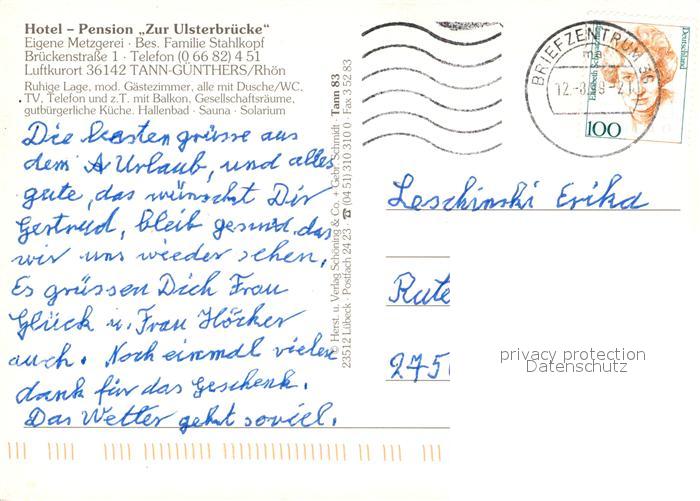 Hotel – Pension „Zur Ulsterbrücke“
Eigene Metzgerei · Bes. Familie Stahlkopf
Brückenstraße 1 · Telefon (0 66 82) 4 51
Luftkurort 36142 TANN-GÜNTHERS/Rhön
Ruhige Lage, mod. Gästezimmer, alle mit Dusche/WC.
TV, Telefon und z.T. mit Balkon, Gesellschaftsräume,
gutbürgerliche Küche. Hallenbad · Sauna · Solarium
Die besten grüsse aus
dem Urlaub, und alles
gute, das wünscht Dir
Gertrud, bleib gesund, das
wir uns wieder sehen,
Es grüssen Dich Frau
Glück u. Frau Höcker
auch. Noch einmal vielen
dank für das Geschenk.
Das Wetter geht soviel.
© Herst. u. Verlag Schöning & Co. + Gebr. Schmidt · Tann 83
23512 Lübeck · Postfach 24 23 ☎ (04 51) 310 310 0 · Fax 3 52 83
BRIEFZENTRUM 36
Deutschland
100
Leschinski Erika
Rute
275
privacy protection
Datenschutz